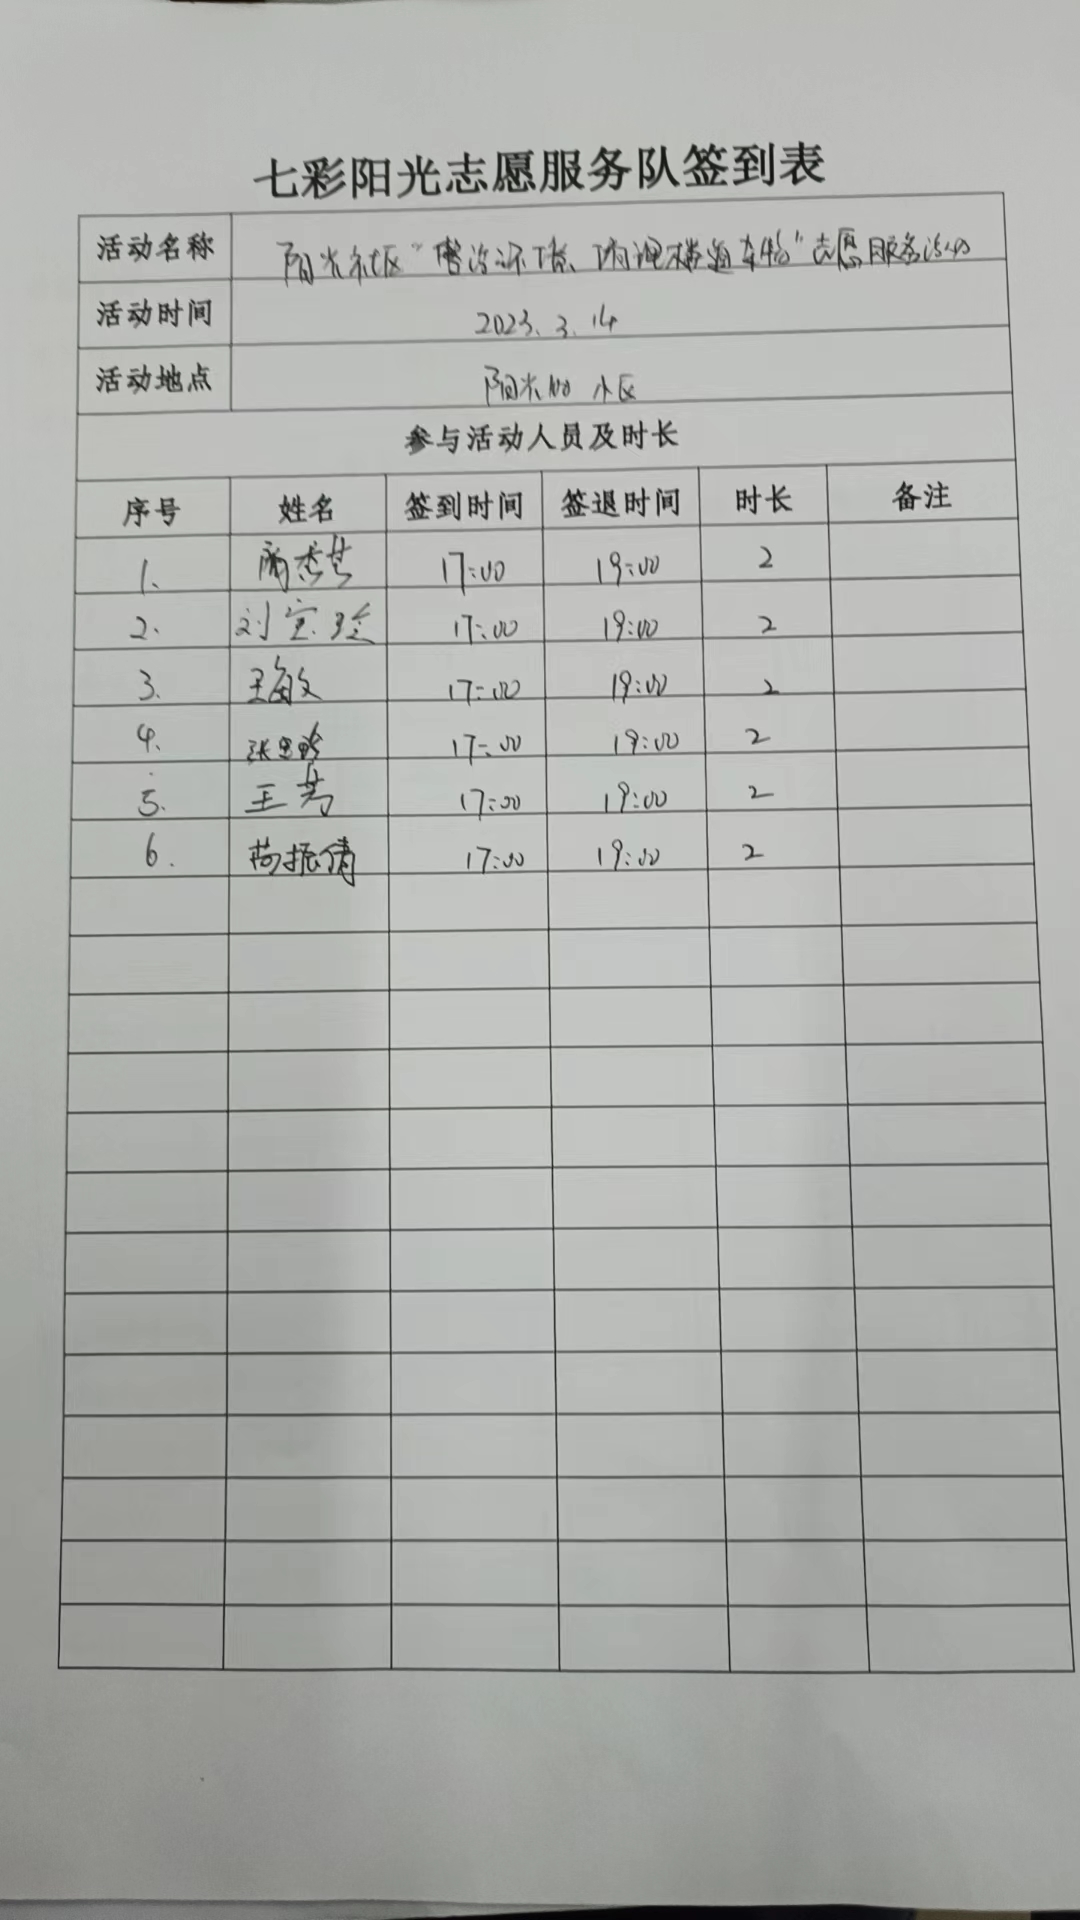 七彩阳光志愿服务队签到表
活动名称 阳光社区“整治环境、清理楼道杂物”志愿服务活动
活动时间 2023.3.14
活动地点 阳光100小区
参与活动人员及时长
序号 姓名 签到时间 签退时间 时长 备注
1. 17:00 19:00 2
2. 刘宝珍 17:00 19:00 2
3. 王敏 17:00 19:00 2
4. 张 17:00 19:00 2
5. 王 17:00 19:00 2
6. 振倩 17:00 19:00 2